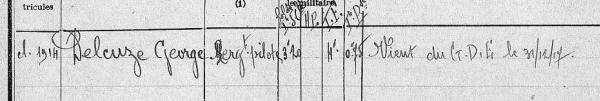 tricules (1) militaire
cl. 1914 Deleuze George Serg^t pilote 3'20 H^t 0.75 Vient du G.D.E. le 31/12/17.